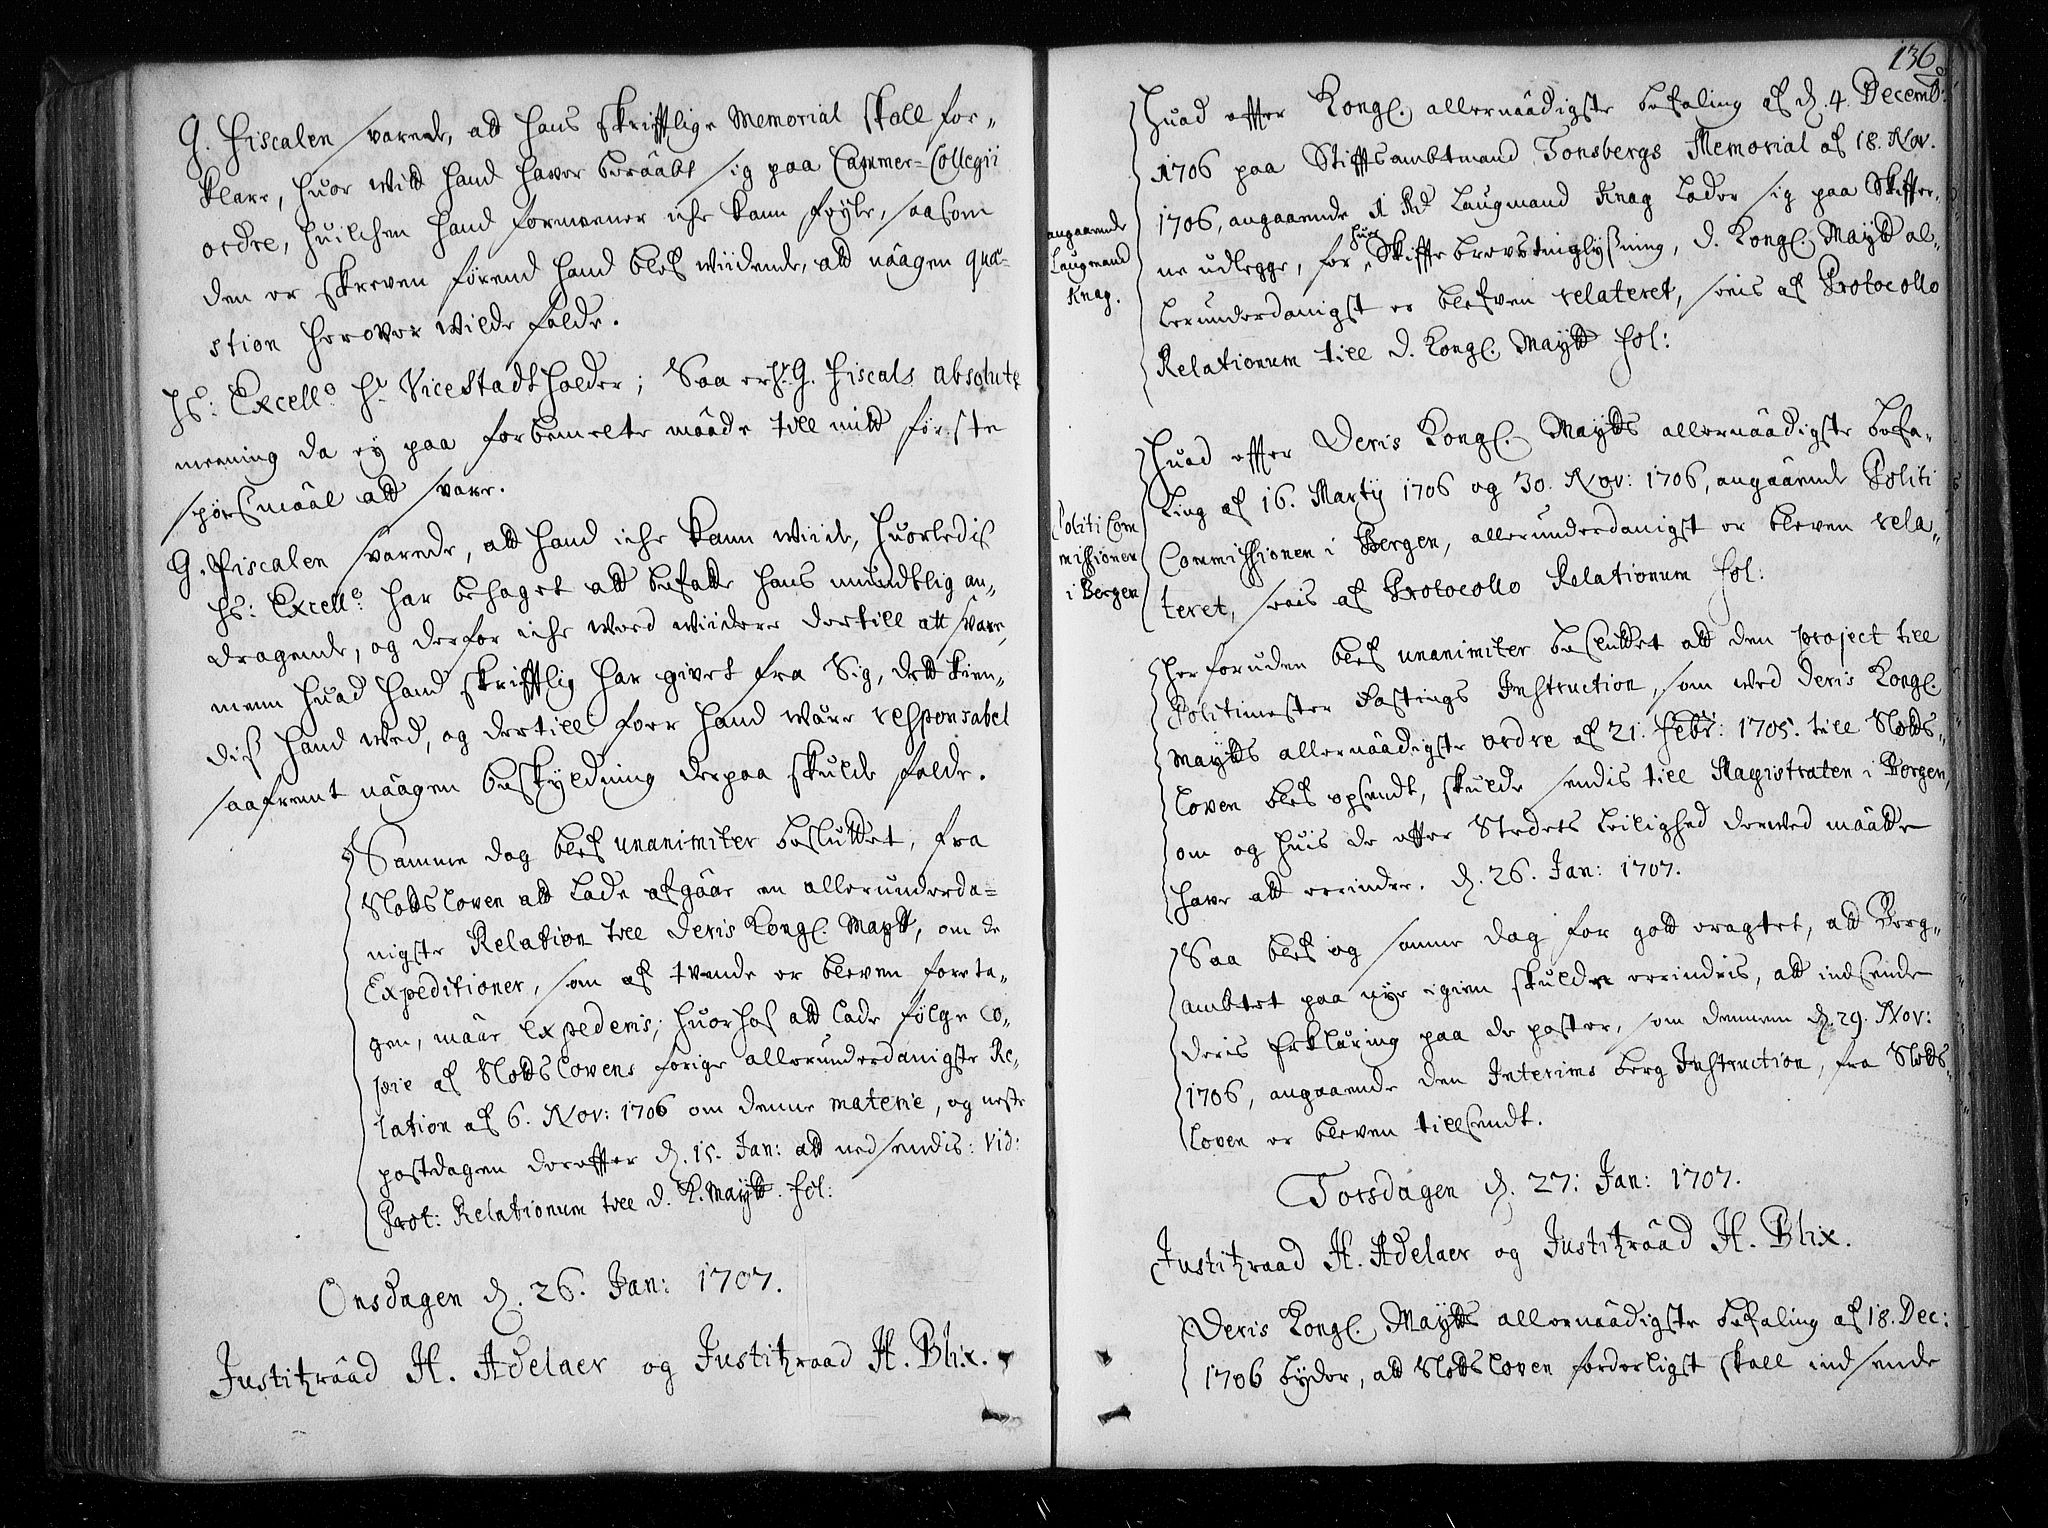 G. Fiscalen svarede, att hans skrifftlige Memorial skall for-
klare, huor wiit hand hafver beraabt sig paa Cammer-Collegii
ordre, huilchen hand formeener iche kann fejle, saasom
den er skreven førend hand blef wiidende, att naagen quæ-
stion herover wilde falde.
Hs: Excell: hr ViceStadtholder; Saa er hr G. Fiscals absolute
meening da ej paa forbemelte maade till mitt første
spørsmaal att svare.
G. Fiscalen svarede, att hand iche kann wiide, huorledis
Hs: Excell: har behaget att befatte hans mundtlig an-
dragende, og derfor iche wed wiidere dertill att svare,
menn huad hand skrifftlig har givet fra Sig, dett kien-
dis hand wed, og dertill foer hand være responsabel
saafremt naagen beskyldning derpaa skulde falde.
Samme dag blef unanimiter besluttet, fra
Slottsloven att lade afgaae en allerunderda-
nigste Relation till Deris Kongl. Maytt, om de
Expeditioner, som af tvende er bleven foreta-
gen, maae expederis; huorhos att lade følge co-
pie af Slottslovens forige allerunderdanigste Re-
lation af 6. Nov: 1706 om denne materie, og neste
postdagen derefter d. 15. Jan: att nedsendis: vid:
Prot: Relationum till D. K. Maytt. fol:
Onsdagen d. 26. Jan: 1707.
Justitzraad H. Adelaer og Justitzraad H. Blix.
136.
Huad efter Kongl. allernaadigste befaling af d. 4. Decemb:
1706 paa Stiftsambtmand Tonsbergs Memorial af 18. Nov.
1706, angaaende 1 Rd Laugmand Knag lader sig paa Skifter-
ne udlegge, for huer Skiftebrevstinglysning, D. Kongl. Maytt al-
lerunderdanigst er blefven relateret, seeis af Protocollo
Relationum till D. Kongl. Maytt fol:
angaaende
Laugmand
Knag.
Huad efter Deris Kongl. Maytts allernaadigste befa-
ling af 16. Martij 1706 og 30. Nov: 1706, angaaende Politi
Commissionen i Bergen, allerunderdanigst er bleven rela-
teret, seeis af Protocollo Relationum fol:
Politi Com
missionen
i Bergen
Herforuden blef unanimiter besluttet att den project till
Politimester Fastings Instruction, som wed Deris Kongl.
Maytts allernaadigste ordre af 21. Febr: 1705. till Slotts-
loven blef opsendt, skulde sendis till Magistraten i Bergen,
om og huis de efter Stedets leilighed derwed maatte
have att errindre. d. 26. Jan: 1707.
Saa blef og samme dag for gott eragtet, att Berg-
ambtet paa nye igien skulde errindris, att indsende
deris Erklæring paa de poster, som dennem d. 29. Nov:
1706, angaaende den Interims berg Instruction, fra Slotts-
loven er bleven tillsendt.
Torsdagen d. 27: Jan: 1707.
Justitzraad H. Adelaer og Justitzraad H. Blix.
Deris Kongl. Maytts allernaadigste befaling af 18. Dec:
1706 byder, att Slottsloven forderligst skall indsende